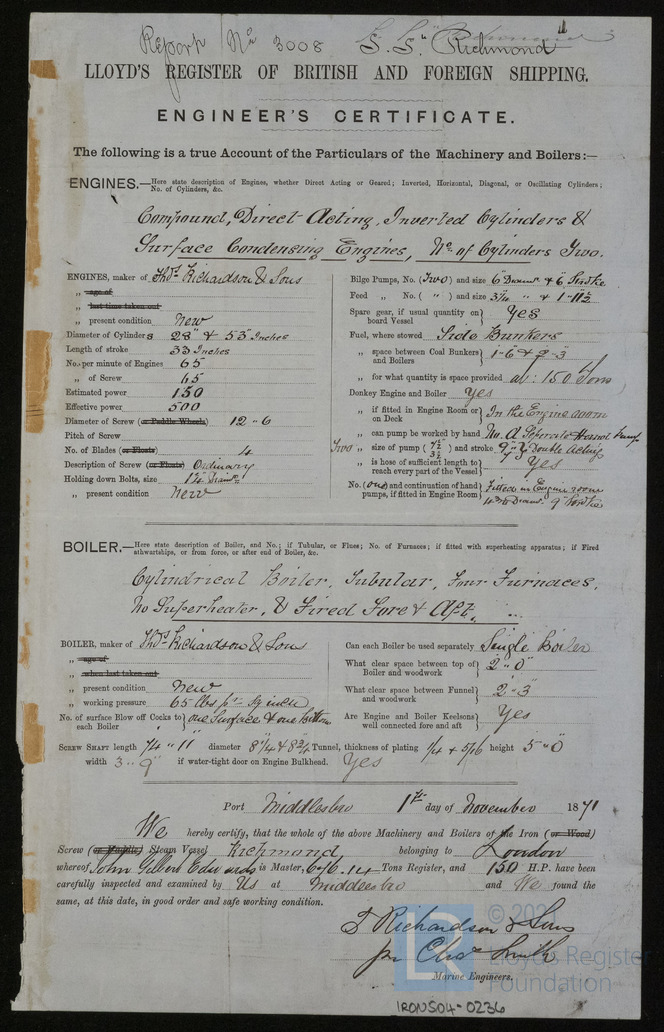 Report No 3008 S.S. "Richmond"
LLOYD'S REGISTER OF BRITISH AND FOREIGN SHIPPING.
ENGINEER'S CERTIFICATE.
The following is a true Account of the Particulars of the Machinery and Boilers:—
ENGINES.—Here state description of Engines, whether Direct Acting or Geared; Inverted, Horizontal, Diagonal, or Oscillating Cylinders;
No. of Cylinders, &c.
Compound, Direct Acting, Inverted Cylinders &
Surface Condensing Engines, No. of Cylinders Two.
ENGINES, maker of Thos. Richardson & Sons
„ age of
„ last time taken out
„ present condition New
Diameter of Cylinders 28" & 53 Inches
Length of stroke 33 Inches
No. per minute of Engines 65
„ of Screw 65
Estimated power 150
Effective power 500
Diameter of Screw (or Paddle Wheels) 12-6
Pitch of Screw
No. of Blades (or Floats) 4
Description of Screw (or Floats) Ordinary
Holding down Bolts, size 1¼ Diamr
„ present condition New
Bilge Pumps, No. (Two) and size 6" Diamr & 6 Stroke
Feed „ No. ( „ ) and size „ & 1-11½
Spare gear, if usual quantity on board Vessel Yes
Fuel, where stowed Side Bunkers
„ space between Coal Bunkers and Boilers 1-6 & 2-3
„ for what quantity is space provided abt 150 Tons
Donkey Engine and Boiler Yes
„ if fitted in Engine Room or on Deck In the Engine room
„ can pump be worked by hand No. A Seperate Hand Pump
Two „ size of pump and stroke 9" Double Acting
„ is hose of sufficient length to reach every part of the Vessel Yes
No. (one) and continuation of hand pumps, if fitted in Engine Room Fitted in Engine room
Diamr 9" Stroke
BOILER.—Here state description of Boiler, and No.; if Tubular, or Flues; No. of Furnaces; if fitted with superheating apparatus; if Fired
athwartships, or from fore, or after end of Boiler, &c.
Cylindrical Boiler, Tubular, Four Furnaces,
No Superheater, & Fired Fore & Aft.
BOILER, maker of Thos. Richardson & Sons
„ age of
„ when last taken out
„ present condition New
„ working pressure 65 lbs pr Sq inch
No. of surface Blow off Cocks to each Boiler one Surface & one Bottom
Can each Boiler be used separately Single Boiler
What clear space between top of Boiler and woodwork 2"-0"
What clear space between Funnel and woodwork 2"-3
Are Engine and Boiler Keelsons well connected fore and aft Yes
SCREW SHAFT length 74"11 diameter 8¼ & 8¾ Tunnel, thickness of plating ¼ & 5/16 height 5"0
width 3"9" if water-tight door on Engine Bulkhead. Yes
Port Middlesbro 1st day of November 1871
We hereby certify, that the whole of the above Machinery and Boilers of the Iron (or Wood)
Screw (or Paddle) Steam Vessel Richmond belonging to London
whereof John Gilbert Edwards is Master, 646.14 Tons Register, and 150 H.P. have been
carefully inspected and examined by Us at Middlesbro and We found the
same, at this date, in good order and safe working condition.
T Richardson & Sons
pr Chas Smith
Marine Engineers.
© 2021
LR Lloyd's Register
Foundation
IRON504-0236